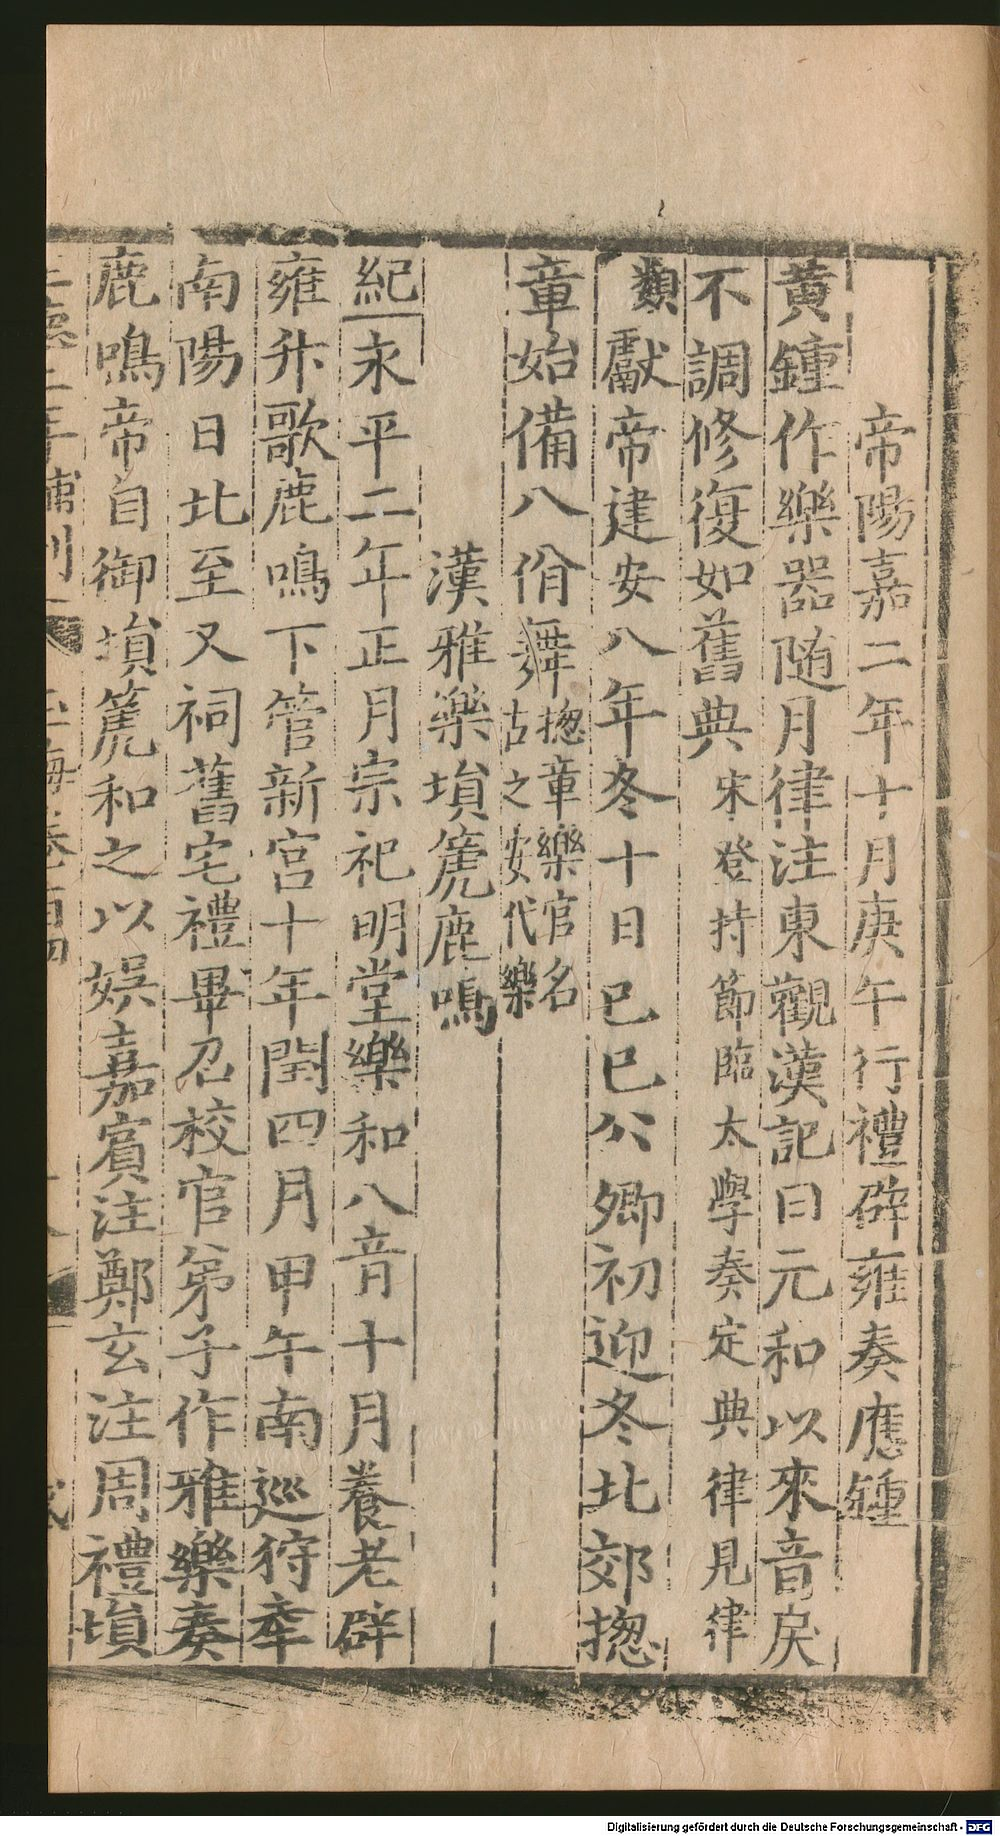 帝陽嘉二年十月庚午行禮辟雍奏應鍾
黄鍾作樂器随月律注東觀漢記曰元和以來音戾
不調修復如舊典宋登持節臨太學奏定典律見律
類獻帝建安八年冬十日已巳公卿初迎冬北郊揔
章始備八佾舞揔章樂官名
古之安代樂
漢雅樂塤篪鹿鳴
紀永平二年正月宗祀明堂樂和八音十月養老辟
雍升歌鹿鳴下管新宮十年閏四月甲午南巡狩幸
南陽日北至又祠舊宅禮畢召校官弟子作雅樂奏
鹿鳴帝自御塤篪和之以娯嘉賓注鄭玄注周禮塤
補刊
Digitalisierung gefördert durch die Deutsche Forschungsgemeinschaft - DFG